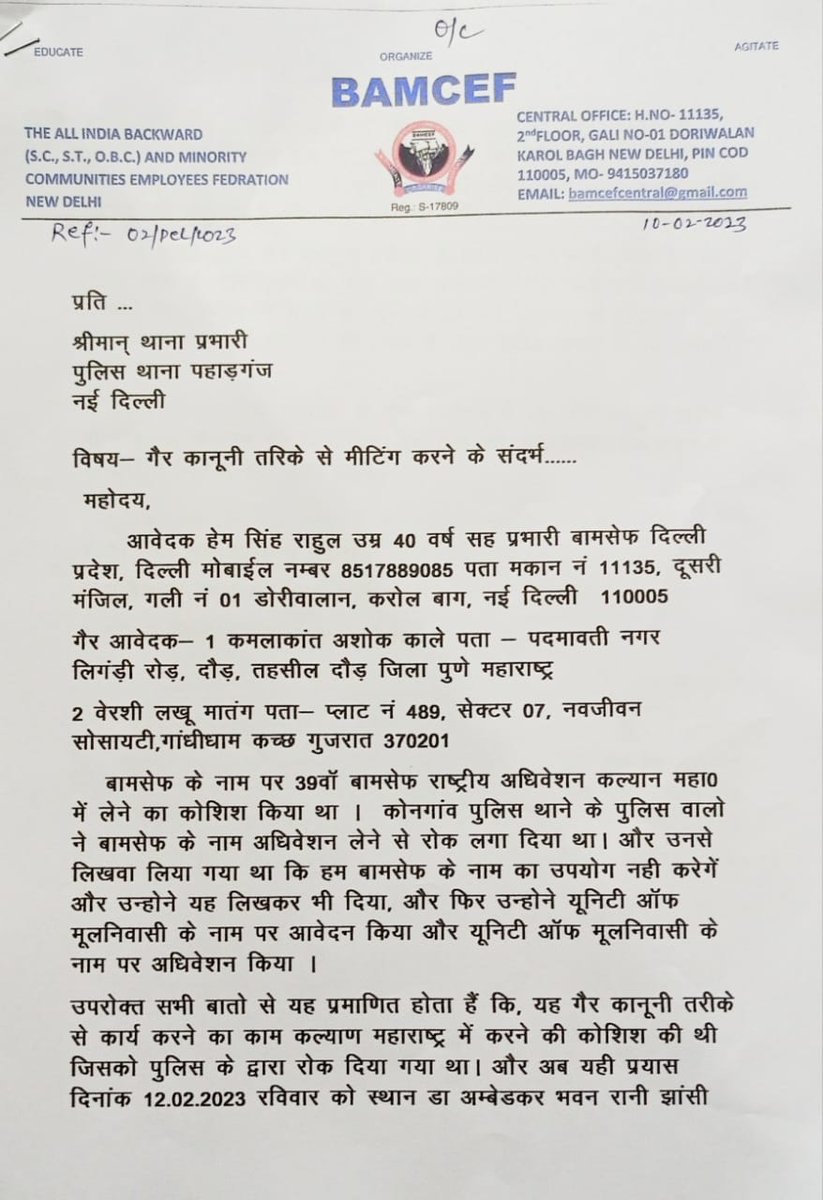 O/C
EDUCATE
ORGANIZE
AGITATE
BAMCEF
THE ALL INDIA BACKWARD
(S.C., S.T., O.B.C.) AND MINORITY
COMMUNITIES EMPLOYEES FEDRATION
NEW DELHI
BAMCEF
Reg.: S-17809
CENTRAL OFFICE: H.NO- 11135,
2ndFLOOR, GALI NO-01 DORIWALAN
KAROL BAGH NEW DELHI, PIN COD
110005, MO- 9415037180
EMAIL: bamcefcentral@gmail.com
Ref:- 02/Del/2023
10-02-2023
प्रति ...
श्रीमान् थाना प्रभारी
पुलिस थाना पहाड़गंज
नई दिल्ली
विषय– गैर कानूनी तरिके से मीटिंग करने के संदर्भ......
महोदय,
आवेदक हेम सिंह राहुल उम्र 40 वर्ष सह प्रभारी बामसेफ दिल्ली
प्रदेश, दिल्ली मोबाईल नम्बर 8517889085 पता मकान नं 11135, दूसरी
मंजिल, गली नं 01 डोरीवालान, करोल बाग, नई दिल्ली 110005
गैर आवेदक– 1 कमलाकांत अशोक काले पता – पदमावती नगर
लिगंड़ी रोड़, दौड़, तहसील दौड़ जिला पुणे महाराष्ट्र
2 वेरशी लखू मातंग पता– प्लाट नं 489, सेक्टर 07, नवजीवन
सोसायटी,गांधीधाम कच्छ गुजरात 370201
बामसेफ के नाम पर 39वॉ बामसेफ राष्ट्रीय अधिवेशन कल्यान महा0
में लेने का कोशिश किया था । कोनगांव पुलिस थाने के पुलिस वालो
ने बामसेफ के नाम अधिवेशन लेने से रोक लगा दिया था। और उनसे
लिखवा लिया गया था कि हम बामसेफ के नाम का उपयोग नही करेगें
और उन्होने यह लिखकर भी दिया, और फिर उन्होने यूनिटी ऑफ
मूलनिवासी के नाम पर आवेदन किया और यूनिटी ऑफ मूलनिवासी के
नाम पर अधिवेशन किया ।
उपरोक्त सभी बातो से यह प्रमाणित होता हैं कि, यह गैर कानूनी तरीके
से कार्य करने का काम कल्याण महाराष्ट्र में करने की कोशिश की थी
जिसको पुलिस के द्वारा रोक दिया गया था। और अब यही प्रयास
दिनांक 12.02.2023 रविवार को स्थान डा अम्बेडकर भवन रानी झांसी